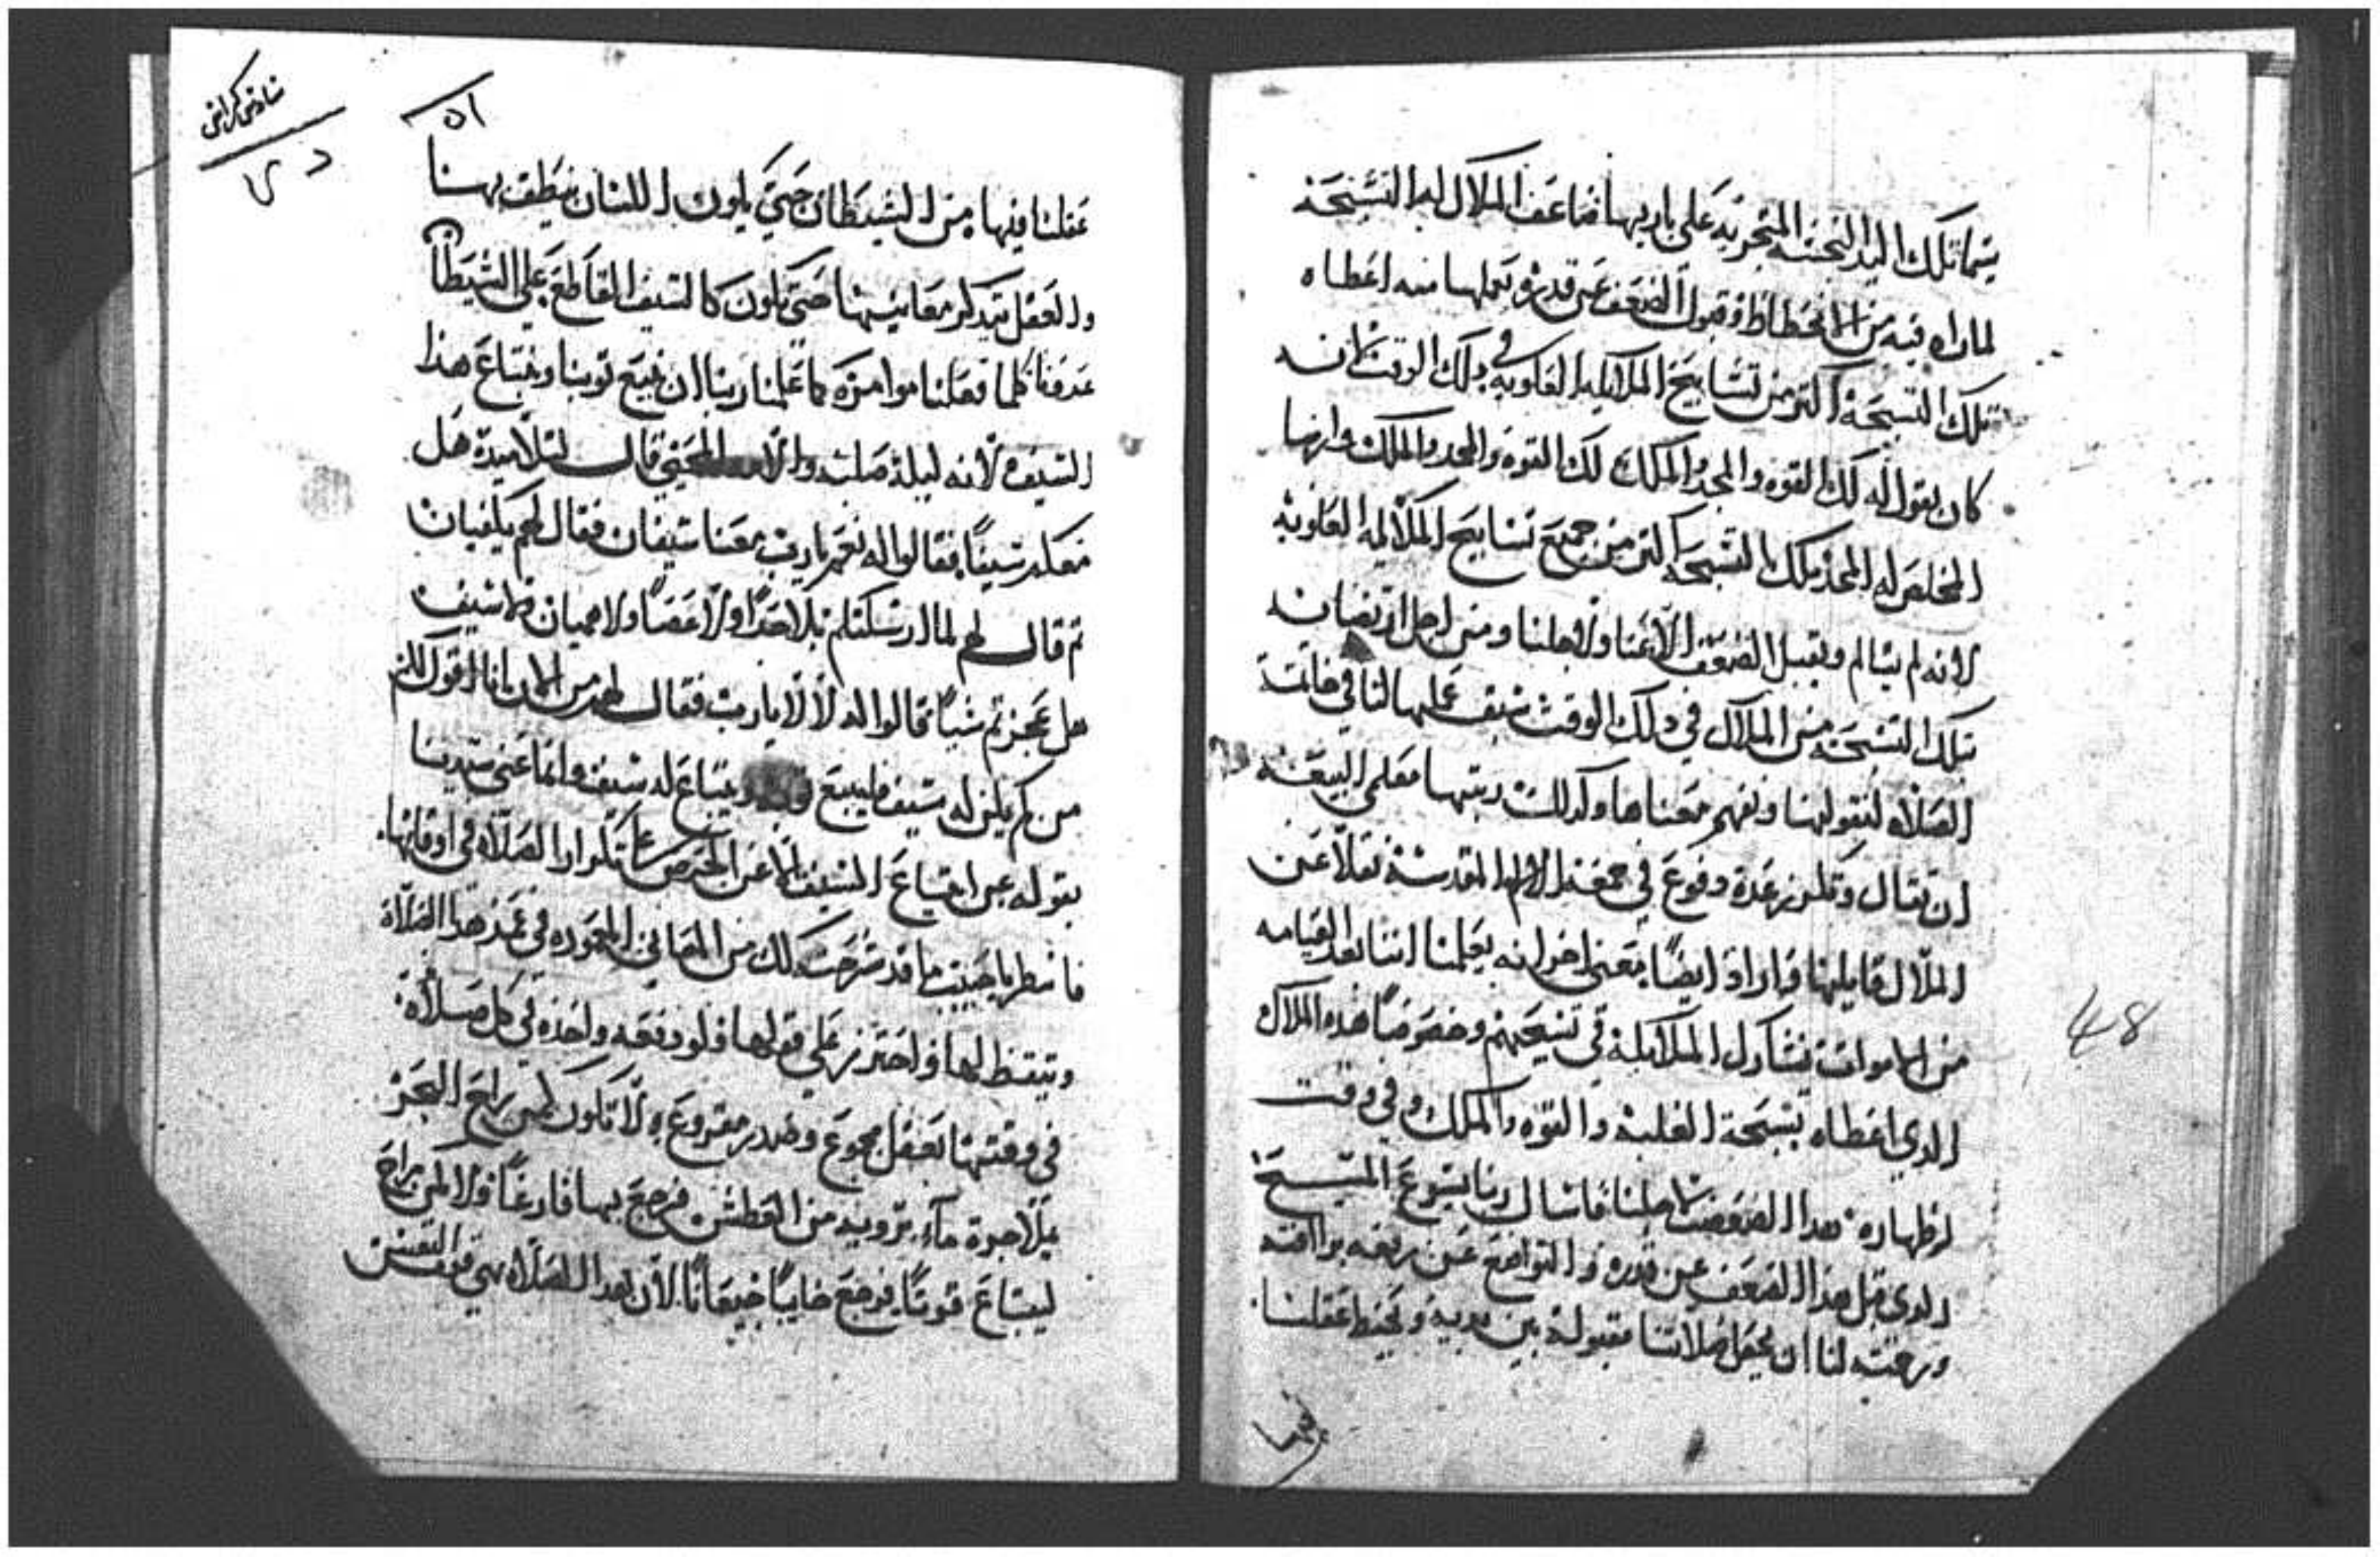 تلك اليد النجسة المتجريه على باريها ضاعف الملاك له التسبحة
لما راه فيه من الانحطاط وقبول الضعف عن قدره وتعلمها منه اعطاه
تلك التسبحة اكتر من تسابيح الملايكه العلويه في دلك الوقت لانه
كان يقول له لك القوه والمجد والملك لك القوه والمجد والملك وانها
المخلص له المجد تلك التسبحه اكتر من جميع تسابيح الملايكه العلويه
لانه لم يتالم ويقبل الضعف الا عنا ولاجلنا ومن اجل ارتضانه
تلك التسبحه من الملاك في دلك الوقت سبق عملها لنا في خاتمة
الصلاه لنقولها ونفهم معناها وكدلك رتبها معلمي البيعه
ان تقال وتكرر عدة دفوع في جمعة الالام المقدسة نقلا عن
الملاك قايلها واراد ايضا بمعنى اخر انه يعلمنا اننا بعد القيامه
من الاموات نشارك الملايكة في تسبيحهم وخصوصا هده الملاك
الدي اعطاه تسبحة الغلبة والقوه والملك وفي وقت
اظهاره هدا الضعف لاجلنا فاسال ربنا يسوع المسيح
الدي قبل هدا الضعف عن قدره والتواضع عن رفعه برافته
ورحمته لنا ان يجعل صلاتنا مقبوله بين يديه ويحفظ عقلنا
48
٥١
عقلنا فيها من الشيطان حتى يكون اللسان ينطق بها
والعقل يتدكر معانيها حتى تكون كالسيف القاطع على الشيطان
عدونا كلما فعلنا موامره كما علمنا ربنا ان نبيع توبنا ونبتاع هذا
السيف لانه ليلة صلبه قال لتلاميده هل
معكم سيفا فقالوا له نعم يارب معنا سيفان فقال لهم يكفيان
تم قال لهم لما ارسلتكم بلا حدا ولا عصا ولا هميان ولا سيف
هل عجزتم شيا قالوا له لا لا يارب فقال لهم من الان انا اقول لكم
من لم يكن له سيف فليبيع ويبتاع له سيف وانما عنى سيدنا
بقوله عن ابتياع السيف الا عن الحرص على تكرار الصلاه في اوقاتها
فانظر يا حبيب ما قد شرحت لك من المعاني في هدا الصلاة
وتيقظ لها واحترز على قولها ولو دفعه واحده في كل صلاة
في وقتها بعقل مجموع وصدر مقروع ولا تكون كمن راح البحر
يملا جرة ماء ترويه من العطش فرجع بها فارغا ولا كمن راح
ليبتاع قوتا فرجع خايبا جيعانا لان هدا الصلاه هي قوت النفس